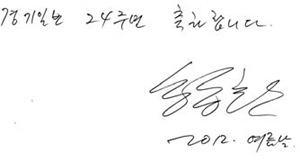 경기일보 24주년 축하합니다.
2012. 여름날